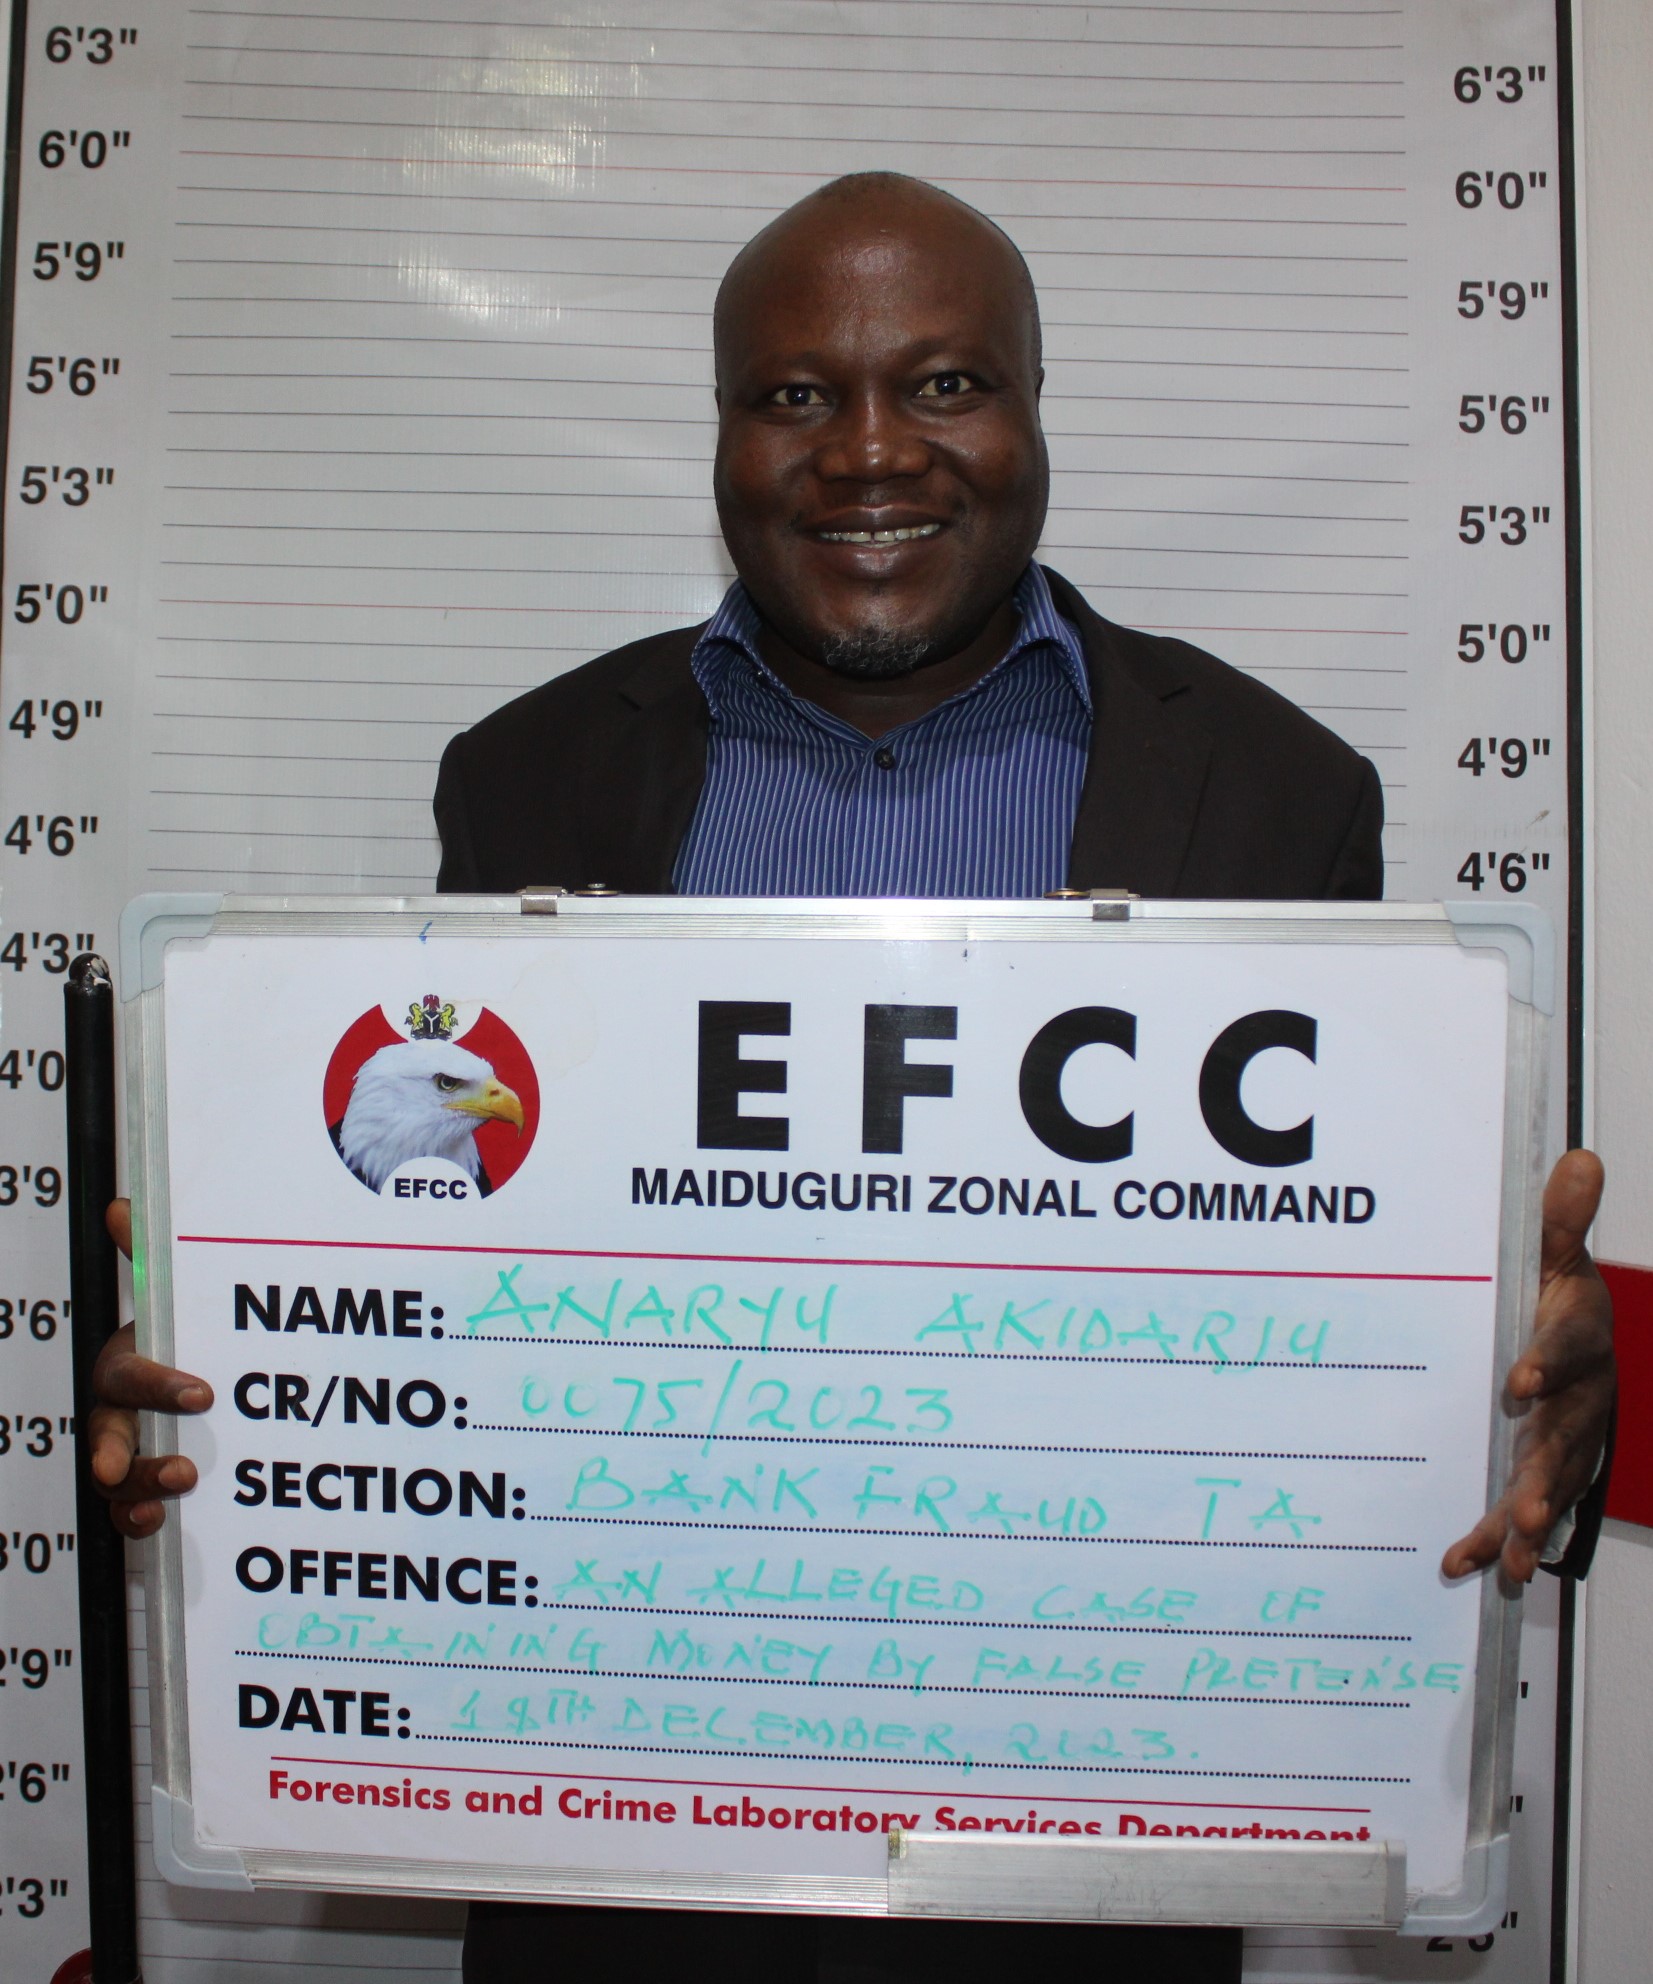 6'3" 6'3"
6'0" 6'0"
5'9" 5'9"
5'6" 5'6"
5'3" 5'3"
5'0" 5'0"
4'9" 4'9"
4'6" 4'6"
4'3"
4'0
3'9
3'6"
3'3"
3'0"
2'9"
2'6"
2'3"
EFCC
EFCC
MAIDUGURI ZONAL COMMAND
NAME: ANARYU AKIDARJU
CR/NO: 0075/2023
SECTION: BANK FRAUD TA
OFFENCE: AN ALLEGED CASE OF
OBTAINING MONEY BY FALSE PRETENSE
DATE: 18TH DECEMBER, 2023.
Forensics and Crime Laboratory Services Department